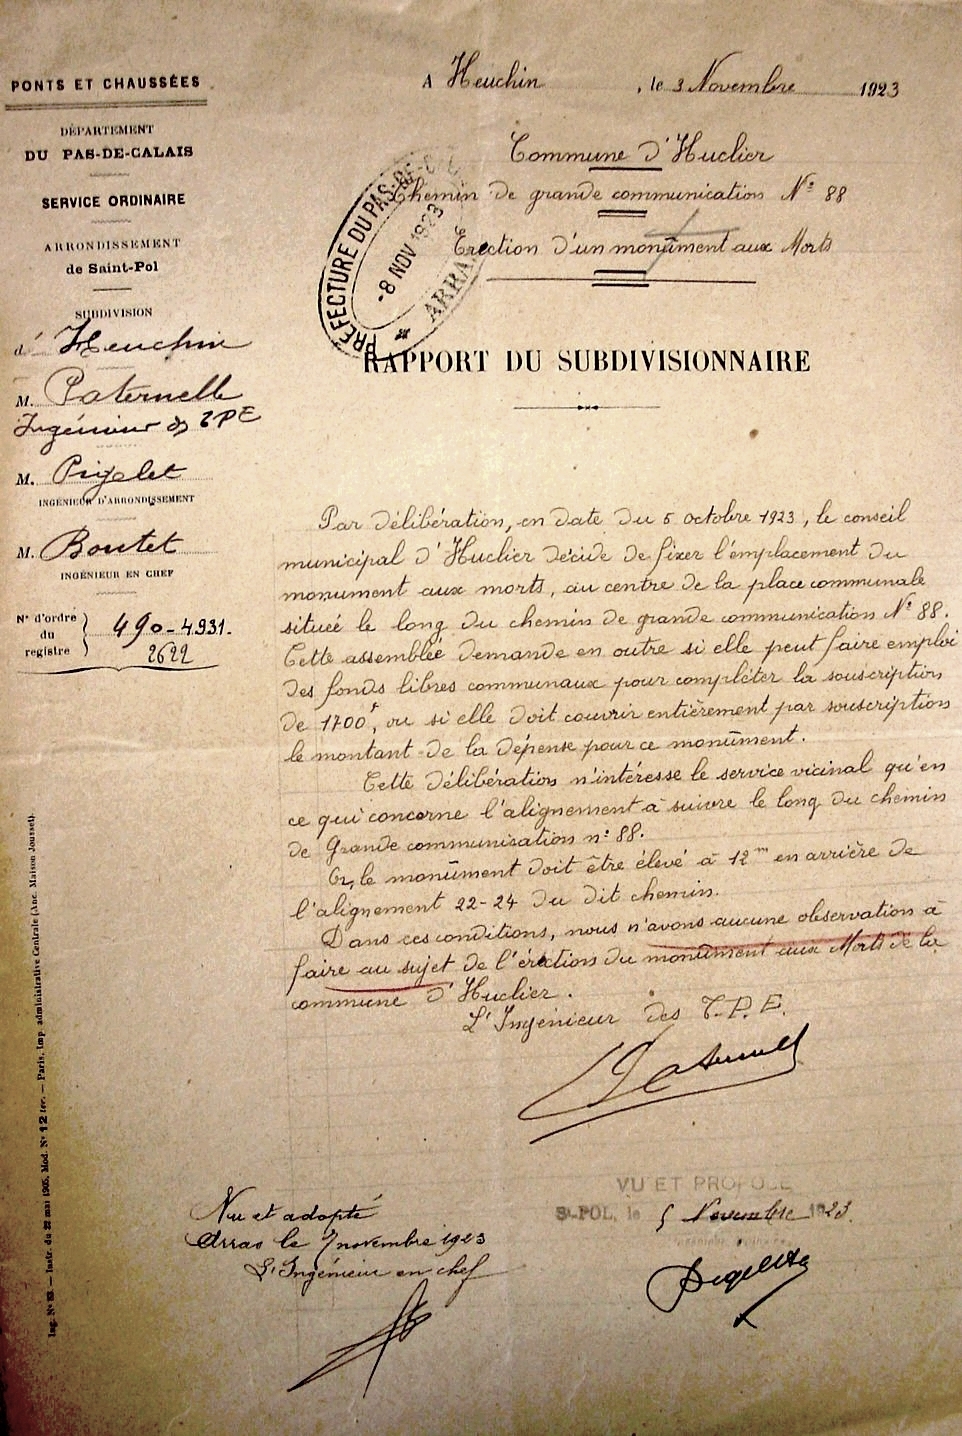 PONTS ET CHAUSSÉES
DÉPARTEMENT
DU PAS-DE-CALAIS
SERVICE ORDINAIRE
ARRONDISSEMENT
de Saint-Pol
SUBDIVISION
d' Heuchin
M. Paternelle
Ingénieur des TPE
M. Pigelet
INGÉNIEUR D'ARRONDISSEMENT
M. Boutet
INGÉNIEUR EN CHEF
N° d'ordre
du
registre
490-4931.
2622
A Heuchin, le 3 Novembre 1923
Commune d'Huclier
Chemin de grande communication N° 88
Erection d'un monument aux Morts
PRÉFECTURE DU PAS-DE-C
-8 NOV 1923
ARRAS
RAPPORT DU SUBDIVISIONNAIRE
Par délibération, en date du 5 octobre 1923, le conseil
municipal d'Huclier décide de fixer l'emplacement du
monument aux morts, au centre de la place communale
située le long du chemin de grande communication N° 88.
Cette assemblée demande en outre si elle peut faire emploi
des fonds libres communaux pour compléter la souscription
de 1700f, ou si elle doit couvrir entièrement par souscription
le montant de la dépense pour ce monument.
Cette délibération n'intéresse le service vicinal qu'en
ce qui concerne l'alignement à suivre le long du chemin
de Grande communication n° 88.
Or, le monument doit être élevé à 12m en arrière de
l'alignement 22-24 du dit chemin.
Dans ces conditions, nous n'avons aucune observation à
faire au sujet de l'érection du monument aux Morts de la
commune d'Huclier.
L'Ingénieur des T.P.E.
Paternelle
VU ET PROPOSÉ
St-POL, le 5 Novembre 1923.
Pigelet
Vu et adopté
Arras le 7 novembre 1923
L'Ingénieur en chef
Ing. N° 83. — Instr. du 22 mai 1905. Mod. N° 12 ter. — Paris. Imp. administrative Centrale (Anc. Maison Jousset).